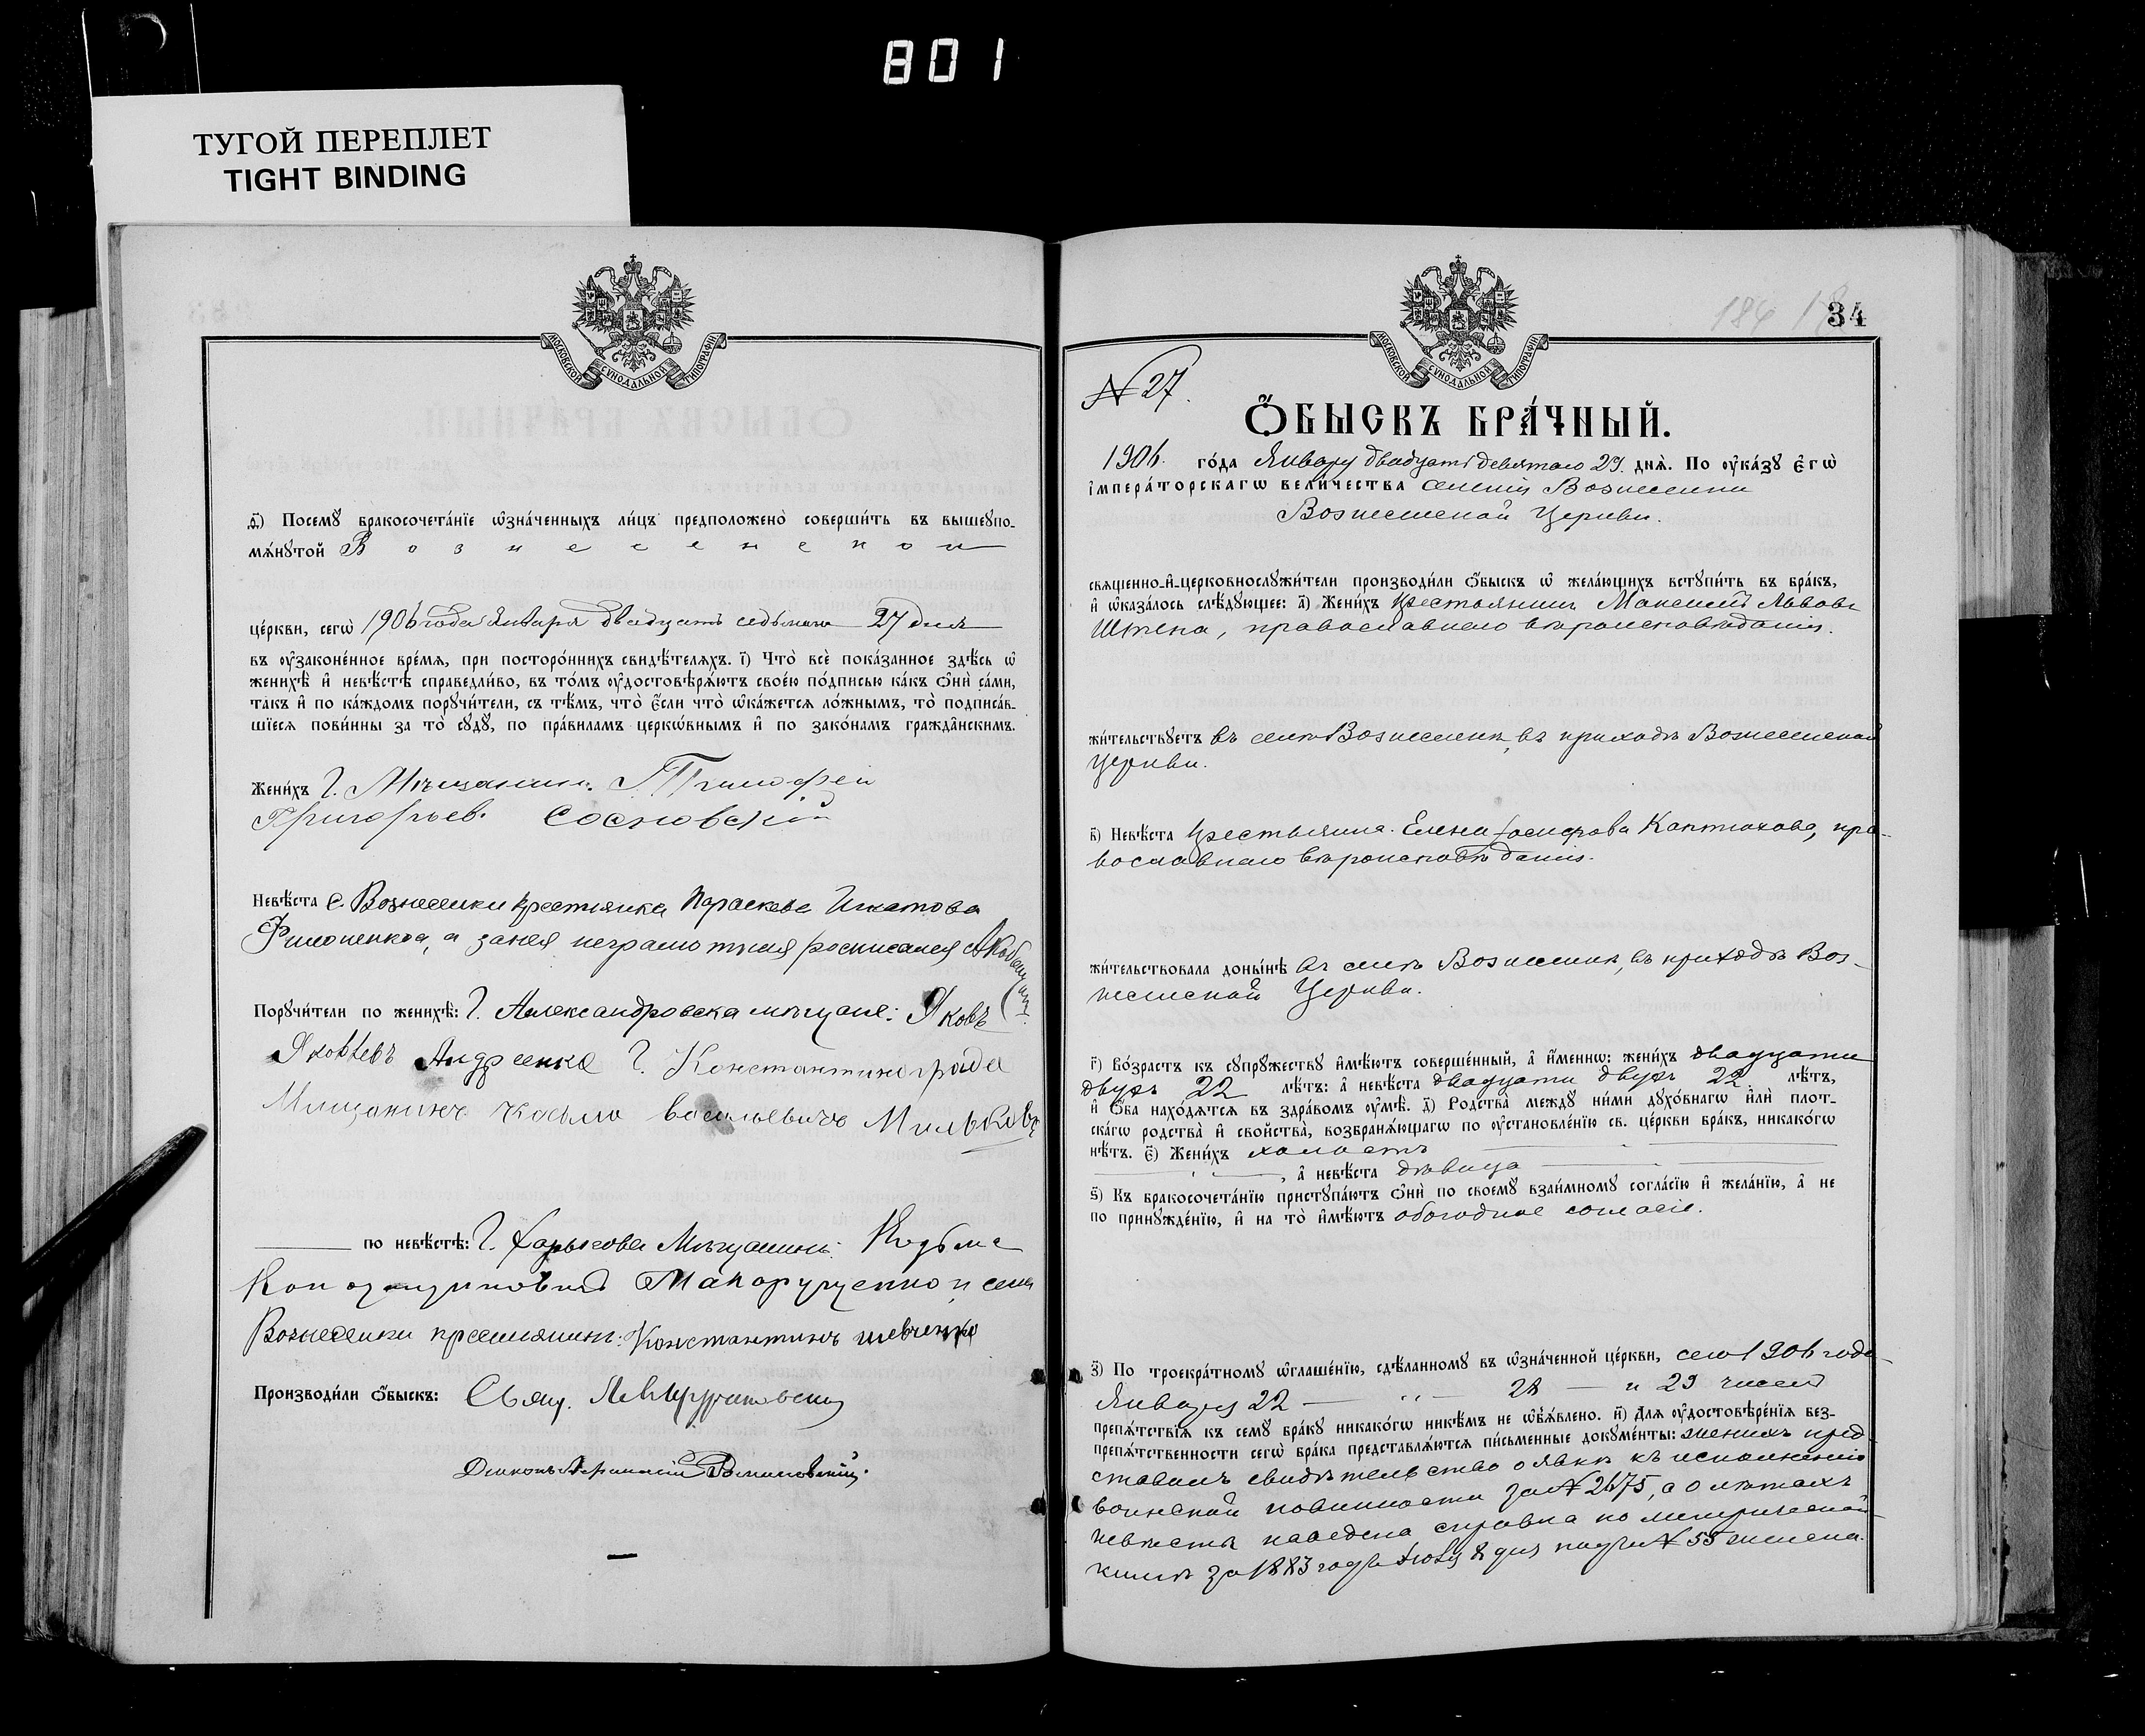 801
ТУГОЙ ПЕРЕПЛЕТ
TIGHT BINDING
МОСКОВСКОЙ СѴНОДАЛЬНОЙ ТИПОГРАФІИ
д҃) Посемꙋ бракосочета́нїе ѡ҆зна́ченныхъ ли́цъ предположено̀ соверши́ть въ вышеꙋпо-
мѧ́нꙋтой Вознесенской
це́ркви, сегѡ̀ 1906 года Января двадцать седьмаго 27 дня
въ ᲂу҆законе́нное вре́мѧ, при посторо́ннихъ свидѣ́телѧхъ. і҃) Что̀ всѐ пока́занное здѣ́сь ѡ҆
женихѣ̀ и҆ невѣ́стѣ справедли́во, въ то́мъ ᲂу҆достовѣрѧ́ютъ свое́ю по́дписью ка́къ ѻ҆нѝ са́ми,
та́къ и҆ по ка́ждомъ порꙋчи́тели, съ тѣ́мъ, что̀ є҆́сли что̀ ѡ҆ка́жетсѧ ло́жнымъ, то̀ подписа́в-
шїесѧ пови́нны за то̀ сꙋдꙋ̀, по пра́виламъ церкѡ́внымъ и҆ по зако́намъ гражда̂нскимъ.
Жени́хъ Г. Мѣщанинъ. Тимофей
Григорьев. Сосновскій
Невѣ́ста С. Вознесенки крестьянка Параскева Игнатова
Филоненкова, а за нея неграмотную росписался
Порꙋчи́тели по женихѣ̀: Г. Александровска мѣщане: Яковъ
Яковлевъ Андреенко Г. Константинограда
Мищанинъ Косьма Васильевичъ Мильковъ
по невѣ́стѣ: Г. Харькова Мѣщанинъ: Козьма
Макорущенко и села
Вознесенки крестьянинъ: Константинъ Шевченко
Производи́ли ѻ҆́быскъ: Свящ.
Діаконъ Афанасій Романовскій.
184
34
МОСКОВСКОЙ СѴНОДАЛЬНОЙ ТИПОГРАФІИ
№ 27.
Ѻ҆́БЫСКЪ БРА́ЧНЫЙ.
1906. го́да Января двадцать девятаго 29. днѧ̀. По ᲂу҆ка́зꙋ є҆гѡ̀
і҆мпера́торскагѡ вели́чества селенія Вознесенки
Вознесенской Церкви.
свѧще́нно-и҆-церковнослꙋжи́тели производи́ли ѻ҆́быскъ ѡ҆ жела́ющихъ встꙋпи́ть въ бра́къ,
и҆ ѡ҆каза́лось слѣ́дꙋющее: а҃) Жени́хъ Крестьянинъ Максимъ Львовъ
Штепа, православнаго вѣроисповѣданія.
жи́тельствꙋетъ въ селѣ Вознесенкѣ, въ приходѣ Вознесенской
Церкви.
в҃) Невѣ́ста Крестьянка. Елена Іосифова Каптюхова, пра-
вославнаго вѣроисповѣданія.
жи́тельствовала доны́нѣ въ селѣ Вознесенкѣ, въ приходѣ Воз-
несенской Церкви.
г҃) Во́зрастъ къ сꙋпрꙋ́жествꙋ и҆мѣ́ютъ соверше́нный, а҆ и҆́менно: жени́хъ двадцати
двухъ 22 лѣ́тъ: а҆ невѣ́ста двадцати двухъ 22. лѣ́тъ,
и҆ ѻ҆́ба нахо́дѧтсѧ въ здра́вомъ ᲂу҆мѣ̀. д҃) Родства̀ междꙋ ни́ми дꙋхо́внагѡ и҆лѝ плот-
ска́гѡ родства̀ и҆ сво́йства̀, возбранѧ́ющагѡ по ᲂу҆становле́нїю св. це́ркви бра́къ, никако́гѡ
нѣ́тъ. є҃) Жени́хъ холостъ
, а҆ невѣ́ста дѣвица
ѕ҃) Къ бракосочета́нїю пристꙋпа́ютъ ѻ҆нѝ по своемꙋ̀ взаи́мномꙋ согла́сїю и҆ жела́нїю, а҆ не
по принꙋжде́нїю, и҆ на то̀ и҆мѣ́ютъ обоюдное согласіе.
з҃) По троекра́тномꙋ ѡ҆глаше́нїю, сдѣ́ланномꙋ въ ѡ҆зна́ченной це́ркви, сего 1906 года
Января 22 — 28 — и 29 чиселъ
препѧ́тствїѧ къ семꙋ̀ бра́кꙋ никако́гѡ никѣ́мъ не ѡ҆б̾ѧ́влено. и҃) Длѧ ᲂу҆достовѣре́нїѧ без-
препѧ́тственности сегѡ̀ бра́ка представлѧ́ютсѧ пи́сьменные докꙋме́нты: женихъ пред-
ставилъ свидѣтельство о явкѣ къ исполненію
воинской повинности за № 2675, а о лѣтахъ
невѣсты наведена справка по метрической
книгѣ за 1883 годъ Іюля 8 дня подъ № 55 женска.